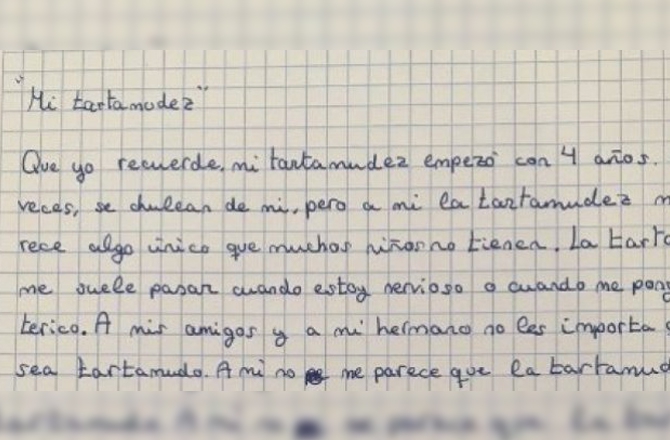 "Mi tartamudez"
Que yo recuerde, mi tartamudez empezó con 4 años.
veces, se chulean de mi, pero a mi la tartamudez m
rece algo único que muchos niños no tienen. La tarta
me suele pasar cuando estoy nervioso o cuando me pon
terico. A mis amigos y a mi hermano no les importa
sea tartamudo. A mi no me parece que la tartamud